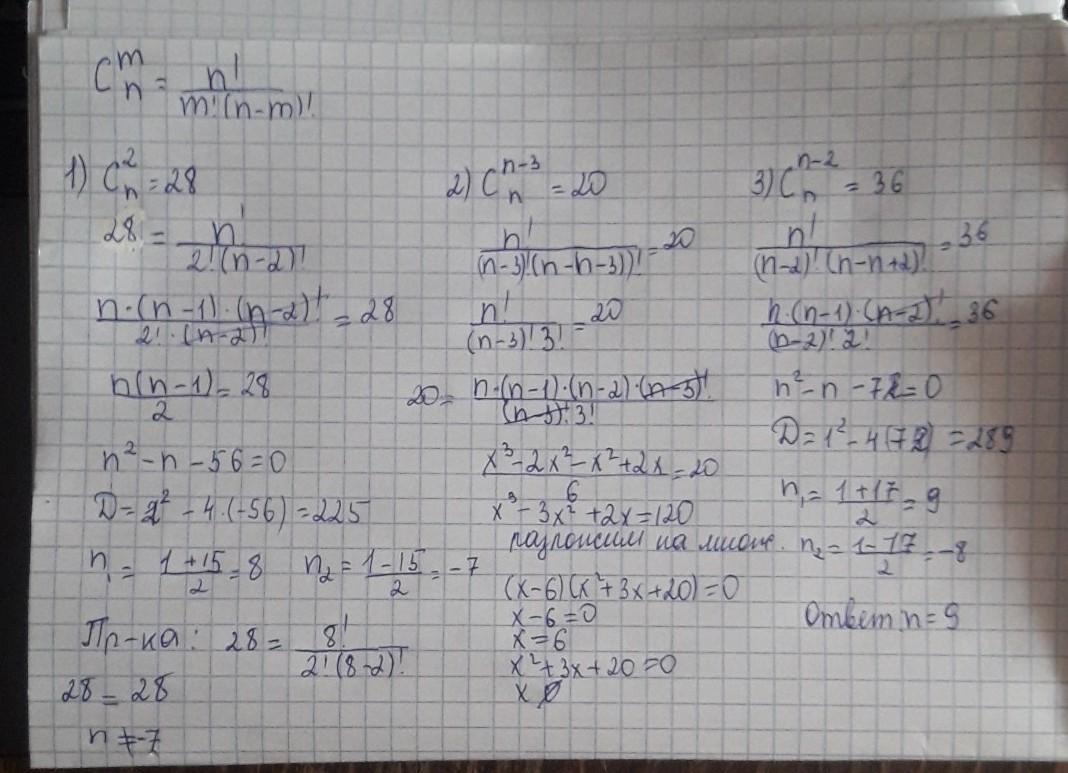 C_n^m = n! / m!(n-m)!
1) C_n^2 = 28
28 = n! / 2!(n-2)!
n·(n-1)·(n-2)! / 2!·(n-2)! = 28
n(n-1) / 2 = 28
n² - n - 56 = 0
Д = 1² - 4·(-56) = 225
n₁ = 1+15 / 2 = 8    n₂ = 1-15 / 2 = -7
Пр-ка: 28 = 8! / 2!(8-2)!
28 = 28
n ≠ -7
2) C_n^{n-3} = 20
n! / (n-3)!(n-n-3))! = 20
n! / (n-3)! 3! = 20
20 = n·(n-1)·(n-2)·(n-3)! / (n-3)! 3!
x³ - 2x² - x² + 2x / 6 = 20
x³ - 3x² + 2x = 120
разложим на множ.
(x-6)(x²+3x+20) = 0
x - 6 = 0
x = 6
x² + 3x + 20 = 0
x ∅
3) C_n^{n-2} = 36
n! / (n-2)!(n-n+2)! = 36
n·(n-1)·(n-2)! / (n-2)! 2! = 36
n² - n - 72 = 0
Д = 1² - 4(72) = 289
n₁ = 1+17 / 2 = 9
n₂ = 1-17 / 2 = -8
Ответ: n = 9